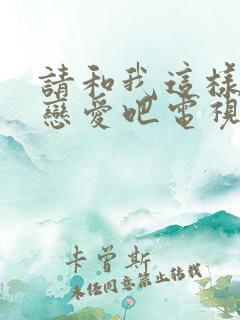 請和我這樣
戀愛吧電視
卡曾斯
未經同意禁止轉載